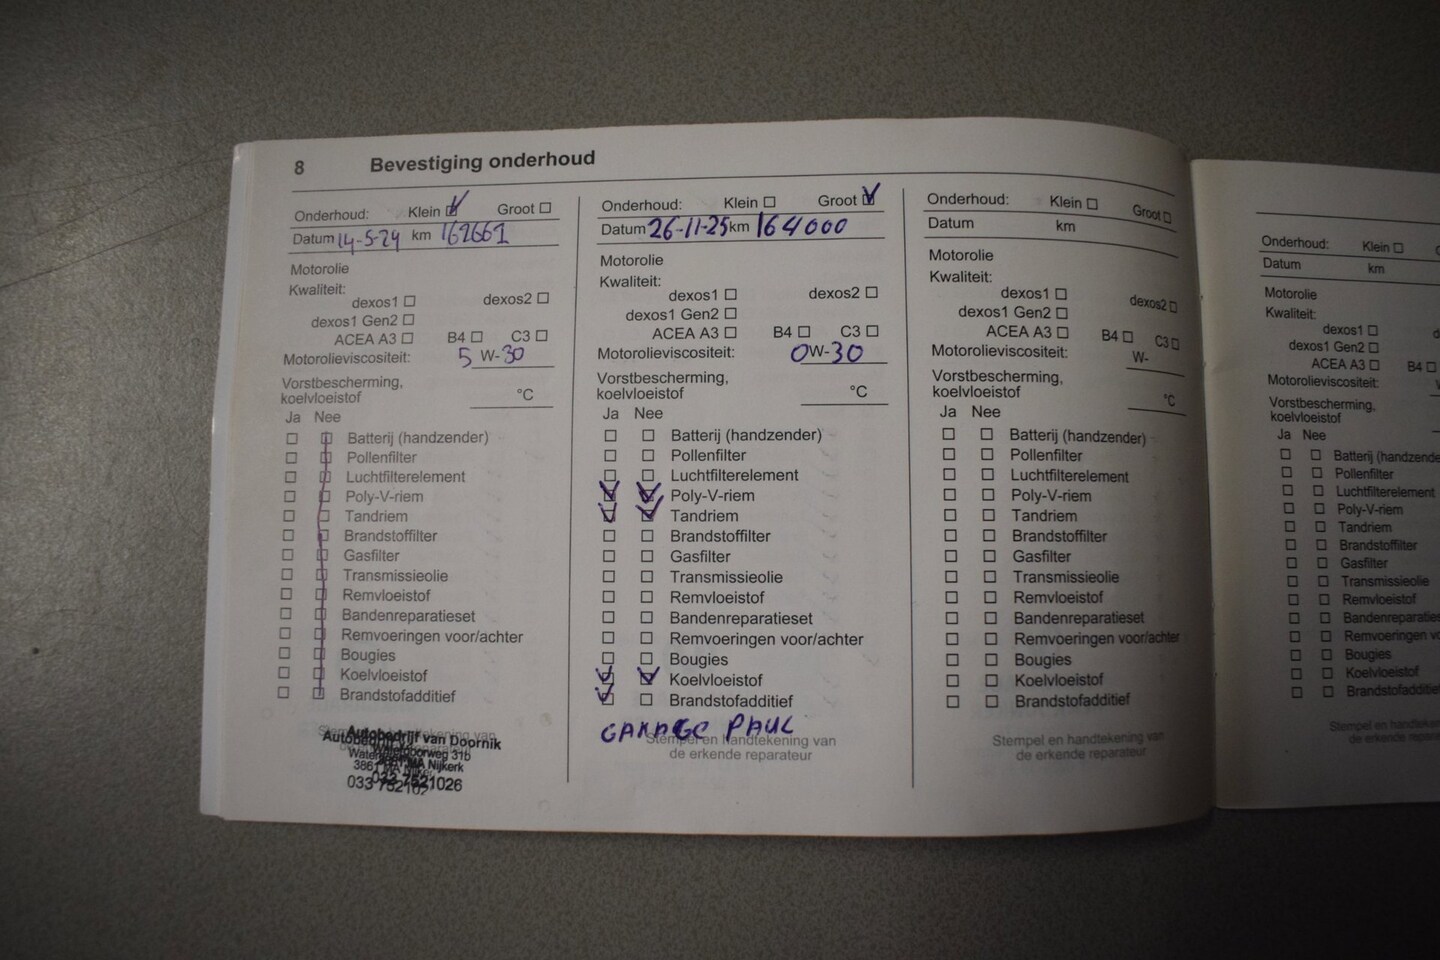 8 Bevestiging onderhoud
Onderhoud: Klein ☑ Groot ☐
Datum 14-5-24 km 162661
Motorolie
Kwaliteit:
dexos1 ☐ dexos2 ☐
dexos1 Gen2 ☐
ACEA A3 ☐ B4 ☐ C3 ☐
Motorolieviscositeit: 5 W-30
Vorstbescherming,
koelvloeistof °C
Ja Nee
Batterij (handzender)
Pollenfilter
Luchtfilterelement
Poly-V-riem
Tandriem
Brandstoffilter
Gasfilter
Transmissieolie
Remvloeistof
Bandenreparatieset
Remvoeringen voor/achter
Bougies
Koelvloeistof
Brandstofadditief
Autobedrijf van Doornik
31b
Nijkerk
033 7521026
Onderhoud: Klein ☐ Groot ☑
Datum 26-11-25 km 164000
Motorolie
Kwaliteit:
dexos1 ☐ dexos2 ☐
dexos1 Gen2 ☐
ACEA A3 ☐ B4 ☐ C3 ☐
Motorolieviscositeit: 0W-30
Vorstbescherming,
koelvloeistof °C
Ja Nee
Batterij (handzender)
Pollenfilter
Luchtfilterelement
Poly-V-riem
Tandriem
Brandstoffilter
Gasfilter
Transmissieolie
Remvloeistof
Bandenreparatieset
Remvoeringen voor/achter
Bougies
Koelvloeistof
Brandstofadditief
GARAGE PAUL
Stempel en handtekening van
de erkende reparateur
Onderhoud: Klein ☐ Groot ☐
Datum km
Motorolie
Kwaliteit:
dexos1 ☐ dexos2 ☐
dexos1 Gen2 ☐
ACEA A3 ☐ B4 ☐ C3 ☐
Motorolieviscositeit: W-
Vorstbescherming,
koelvloeistof °C
Ja Nee
Batterij (handzender)
Pollenfilter
Luchtfilterelement
Poly-V-riem
Tandriem
Brandstoffilter
Gasfilter
Transmissieolie
Remvloeistof
Bandenreparatieset
Remvoeringen voor/achter
Bougies
Koelvloeistof
Brandstofadditief
Stempel en handtekening van
de erkende reparateur
Onderhoud: Klein ☐
Datum km
Motorolie
Kwaliteit:
dexos1 ☐
dexos1 Gen2 ☐
ACEA A3 ☐ B4 ☐
Motorolieviscositeit:
Vorstbescherming,
koelvloeistof
Ja Nee
Batterij (handzende
Pollenfilter
Luchtfilterelement
Poly-V-riem
Tandriem
Brandstoffilter
Gasfilter
Transmissieolie
Remvloeistof
Bandenreparaties
Remvoeringen vo
Bougies
Koelvloeistof
Brandstofadditief
Stempel en handteken
de erkende repara